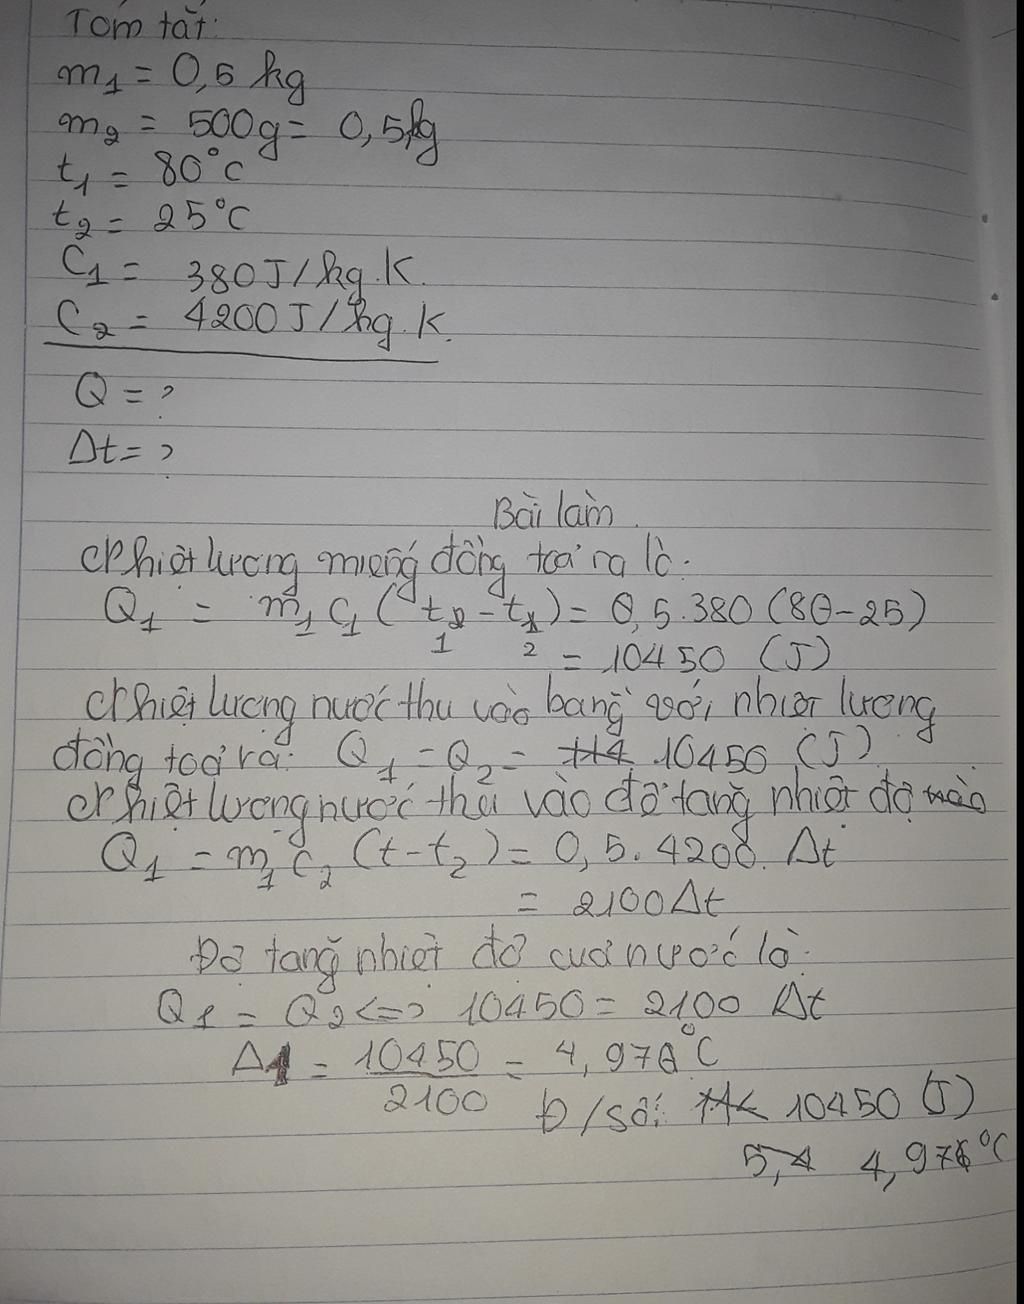 Tóm tắt:
m1 = 0,5 kg
m2 = 500g = 0,5kg
t1 = 80°C
t2 = 25°C
C1 = 380J/kg.K.
C2 = 4200J/kg.K.
Q = ?
Δt = ?
Bài làm
Nhiệt lượng miếng đồng toả ra là:
Q1 = m1 C1 (t1 - t2) = 0,5.380 (80-25)
= 10450 (J)
Nhiệt lượng nước thu vào bằng với nhiệt lượng
đồng toả ra: Q1 = Q2 = 10450 (J)
Nhiệt lượng nước thu vào để tăng nhiệt độ
Q1 = m1 C2 (t-t2) = 0,5.4200.Δt
= 2100Δt
Độ tăng nhiệt độ của nước là:
Q1 = Q2 <=> 10450 = 2100 Δt
Δt = 10450/2100 = 4,976°C
Đ/số: 10450 (J)
4,976°C